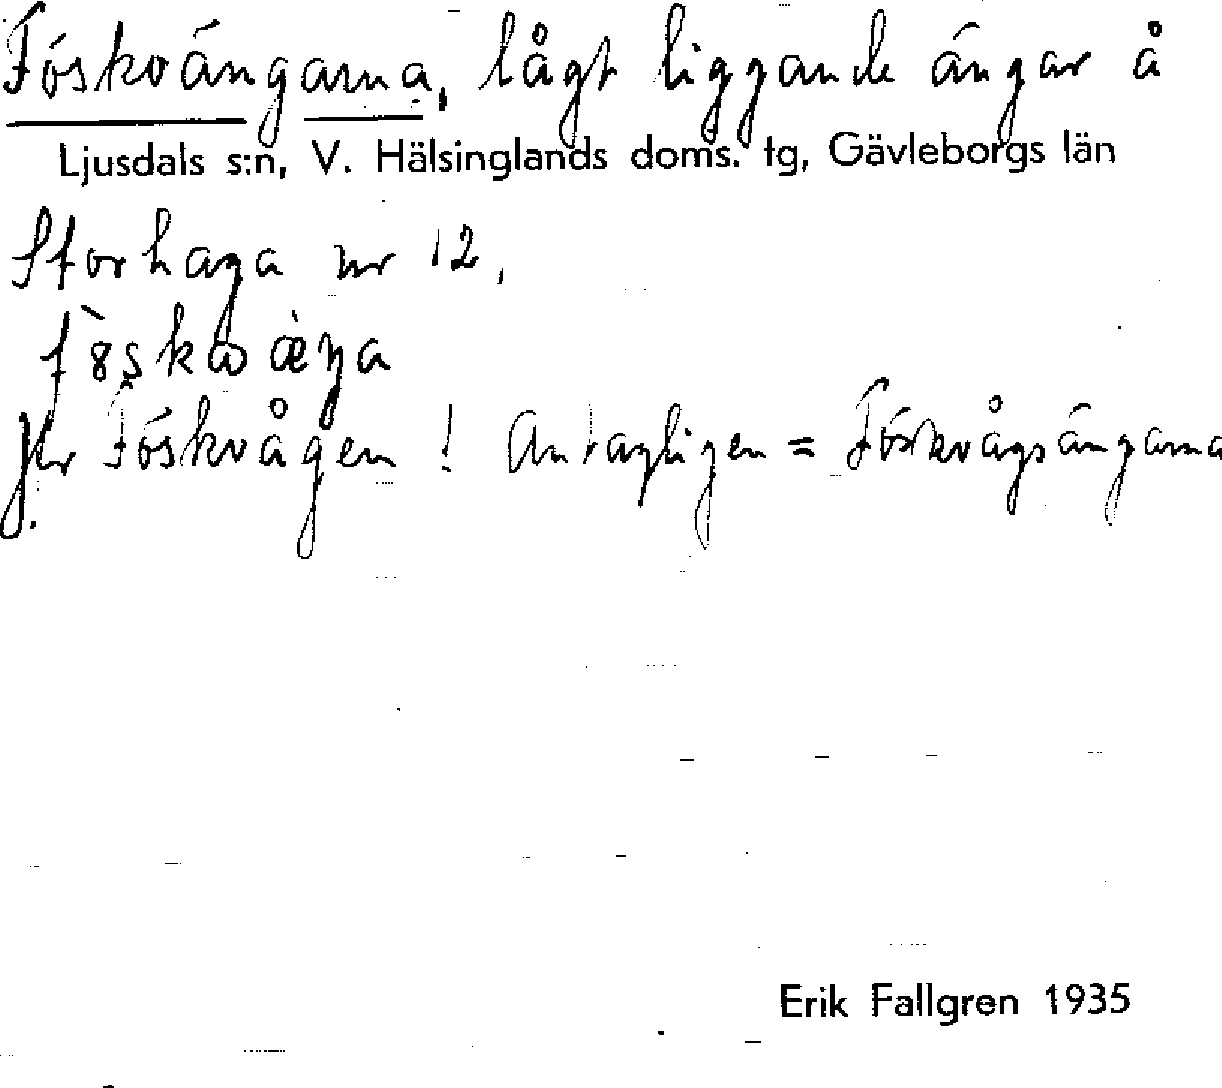 Föskvängarna, lågt liggande ängar å
Ljusdals s:n, V. Hälsinglands doms. tg, Gävleborgs län
Storhaga nr 12,
Jfr Föskvågen! Antagligen = Föskvågsängarna
Erik Fallgren 1935